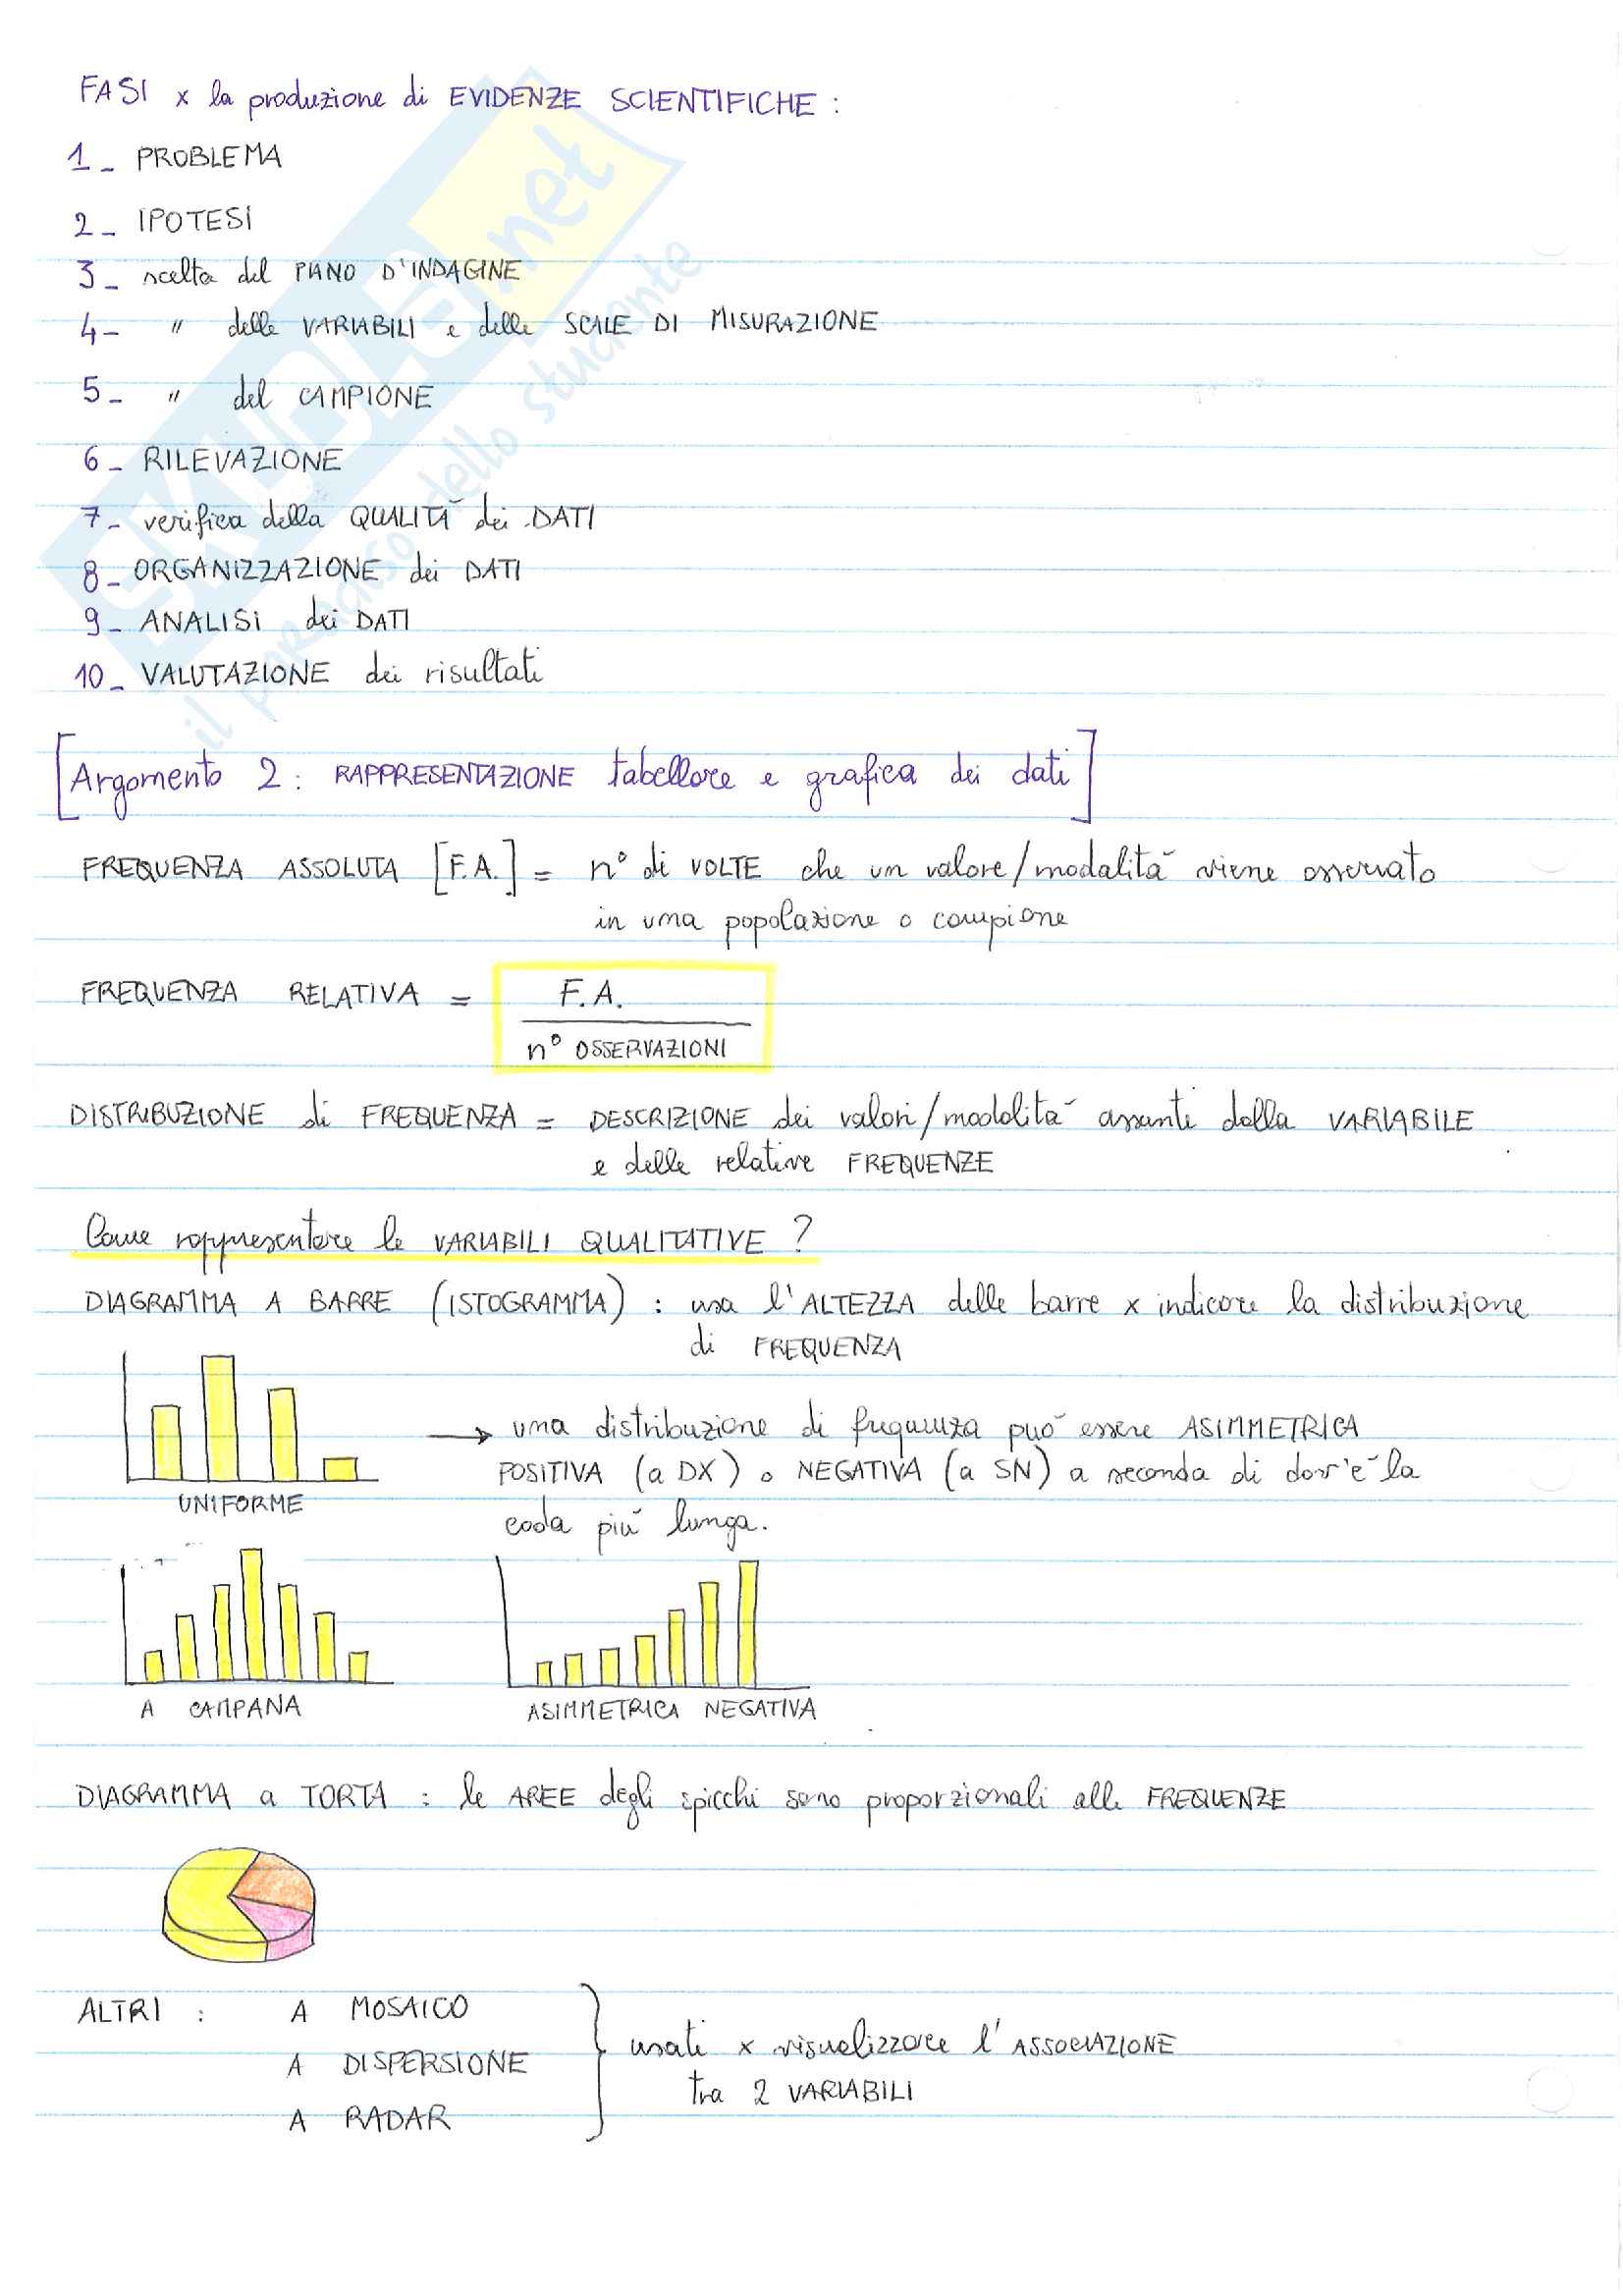 FASI x la produzione di EVIDENZE SCIENTIFICHE :
1_ PROBLEMA
2_ IPOTESI
3_ scelta del PIANO D'INDAGINE
4_ " delle VARIABILI e delle SCALE DI MISURAZIONE
5_ " del CAMPIONE
6_ RILEVAZIONE
7_ verifica della QUALITÀ dei DATI
8_ ORGANIZZAZIONE dei DATI
9_ ANALISI dei DATI
10_ VALUTAZIONE dei risultati
SKUOLA.net
il paradiso dello studente
[Argomento 2: RAPPRESENTAZIONE tabellare e grafica dei dati]
FREQUENZA ASSOLUTA [F.A.] = n° di VOLTE che un valore/modalità viene osservato
in una popolazione o campione
FREQUENZA RELATIVA = F.A.
n° OSSERVAZIONI
DISTRIBUZIONE di FREQUENZA = DESCRIZIONE dei valori/modalità assunti dalla VARIABILE
e delle relative FREQUENZE
Come rappresentare le VARIABILI QUALITATIVE ?
DIAGRAMMA A BARRE (ISTOGRAMMA) : usa l'ALTEZZA delle barre x indicare la distribuzione
di FREQUENZA
UNIFORME
→ una distribuzione di frequenza può essere ASIMMETRICA
POSITIVA (a DX) o NEGATIVA (a SN) a seconda di dov'è la
coda più lunga.
A CAMPANA
ASIMMETRICA NEGATIVA
DIAGRAMMA a TORTA : le AREE degli spicchi sono proporzionali alle FREQUENZE
ALTRI : A MOSAICO
A DISPERSIONE
A RADAR
usati x visualizzare l'ASSOCIAZIONE
tra 2 VARIABILI